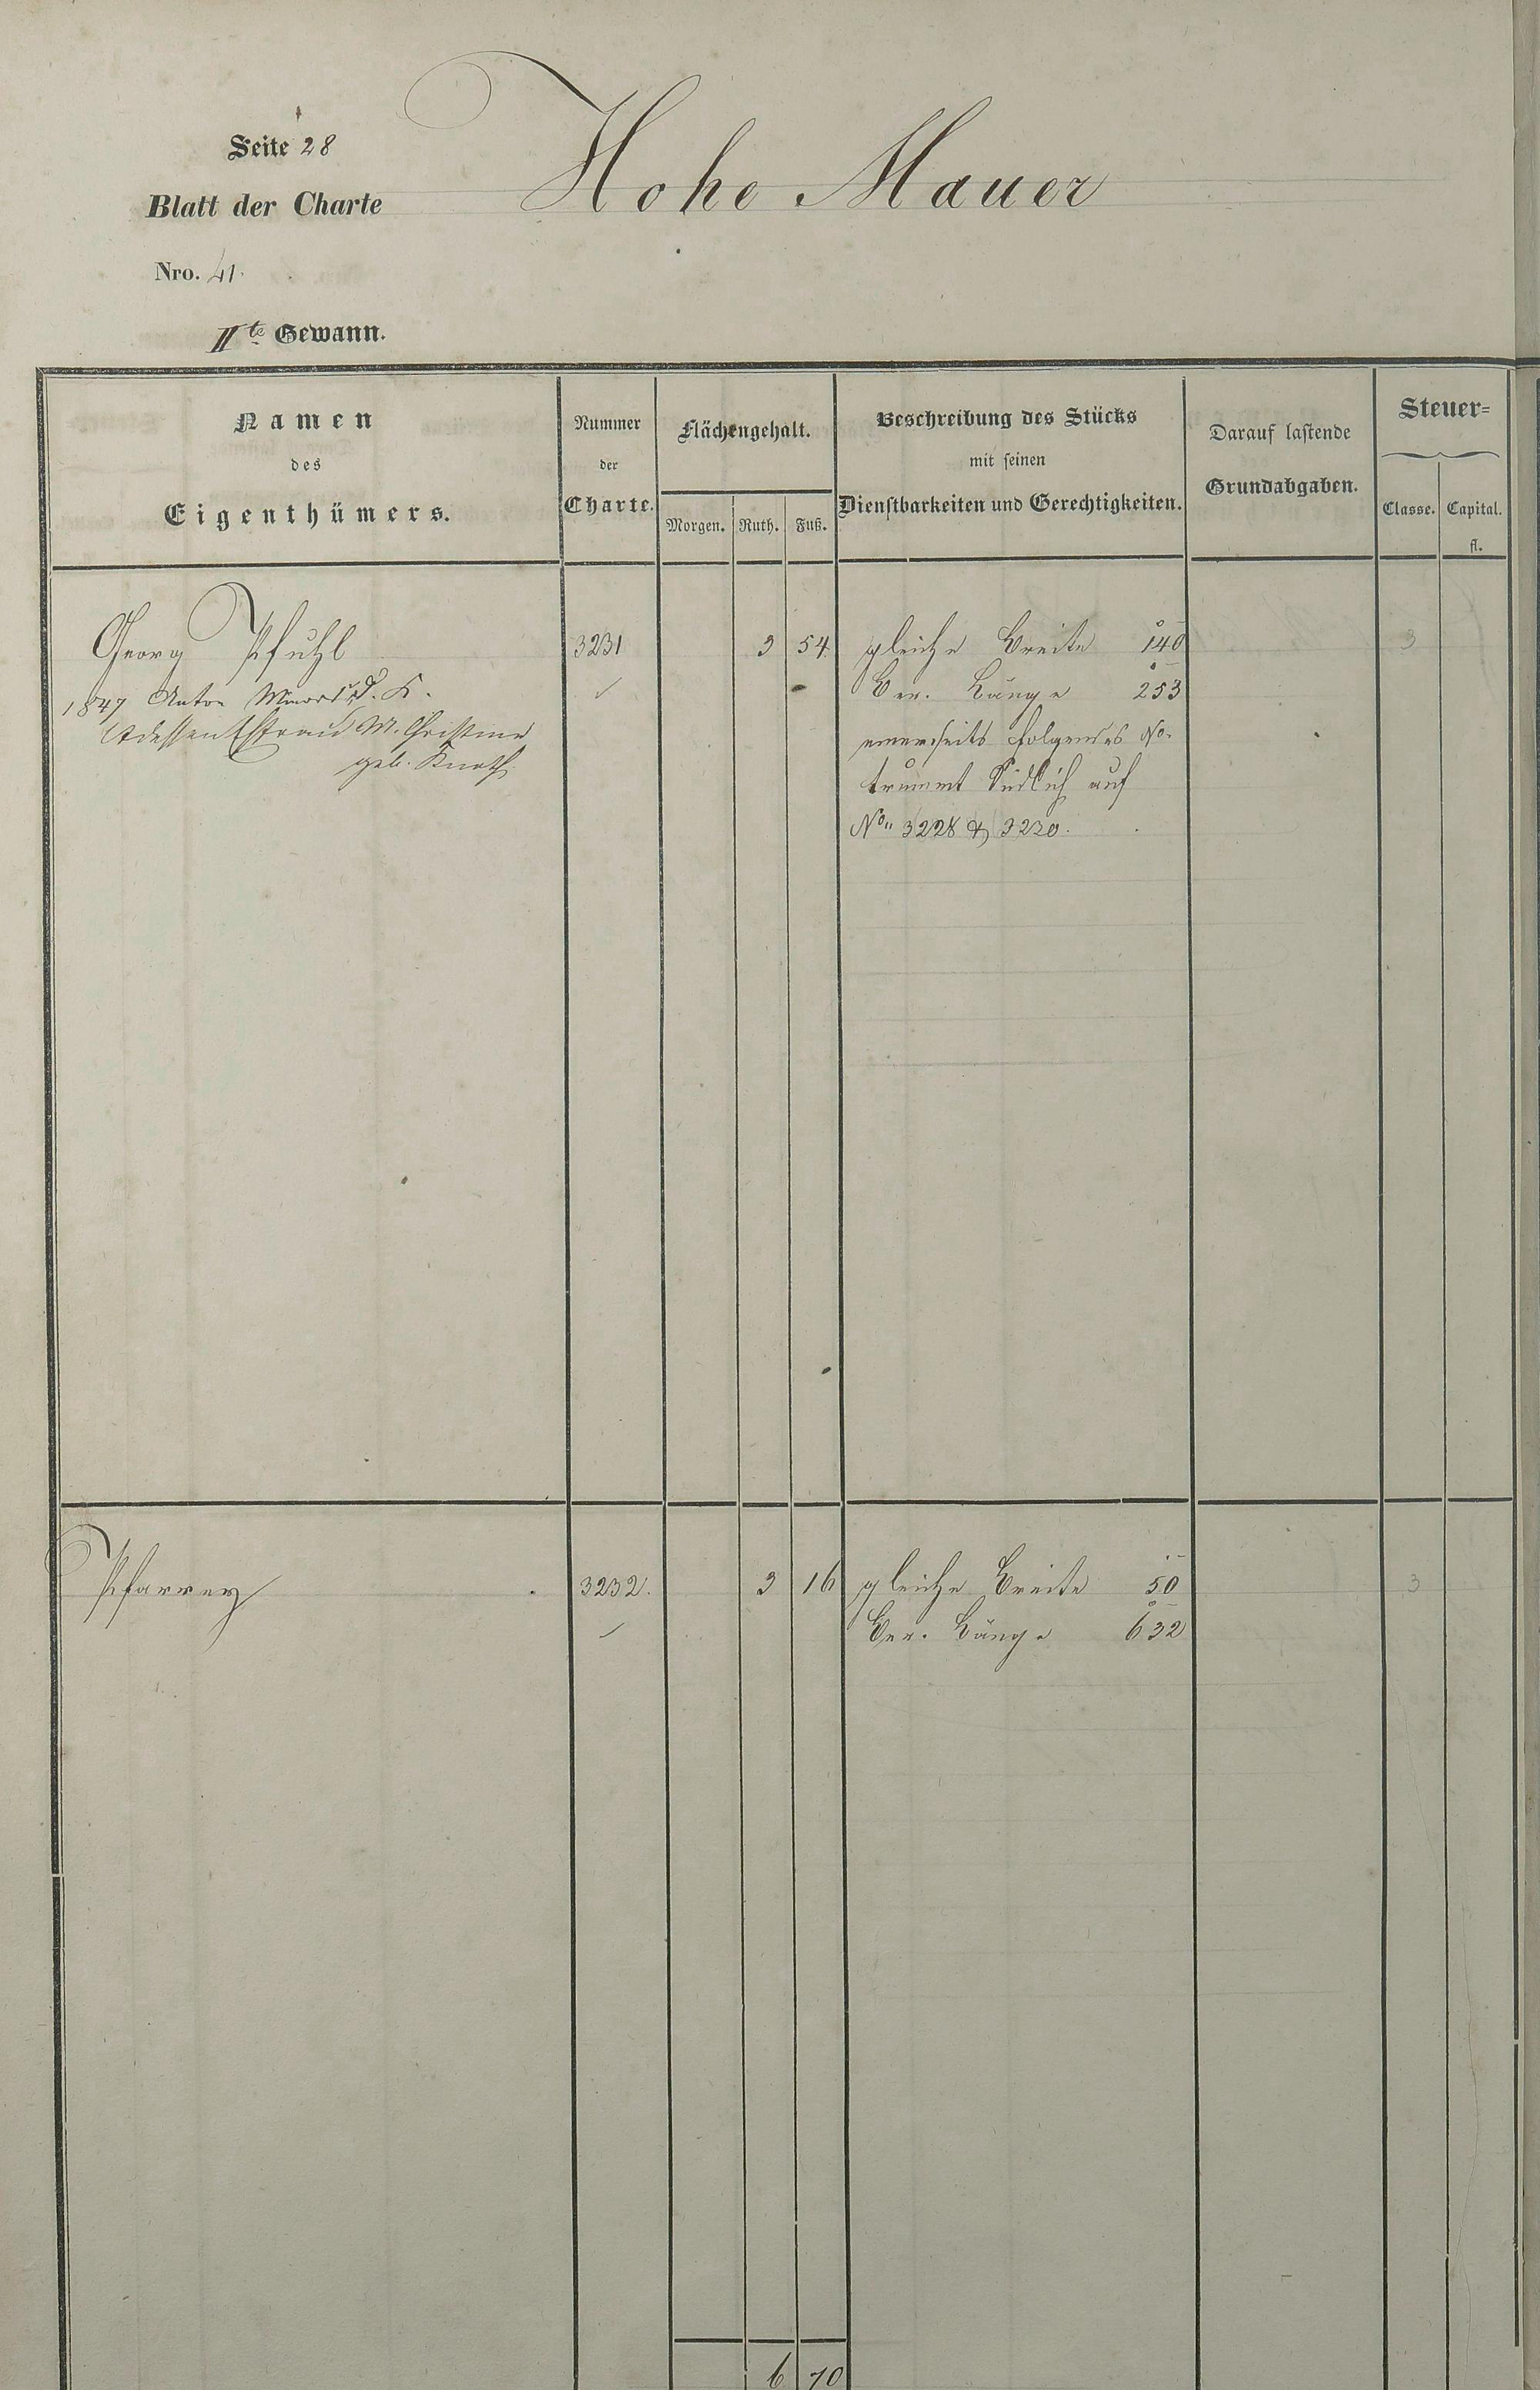 Seite 28
Hohe Mauer
Blatt der Charte
Nro. 41.
IIte Gewann.
Namen
des
Eigenthümers.
Nummer
der
Charte.
Flächengehalt.
Morgen. Ruth. Fuß.
Beschreibung des Stücks
mit seinen
Dienstbarkeiten und Gerechtigkeiten.
Darauf lastende
Grundabgaben.
Steuer=
Classe. Capital.
fl.
Georg Pfuhl 3231 3 54 gleiche Breite 140 3
1847 Anton Ber. Länge 253
dessen Ehefrau M. Christine einerseits folgendes No.
geb. Knoth
trummt Südlich auf
No. 3228 & 3230.
Pfarrey 3232. 3 16 gleiche Breite 50 3
Ber. Länge 632
6 70